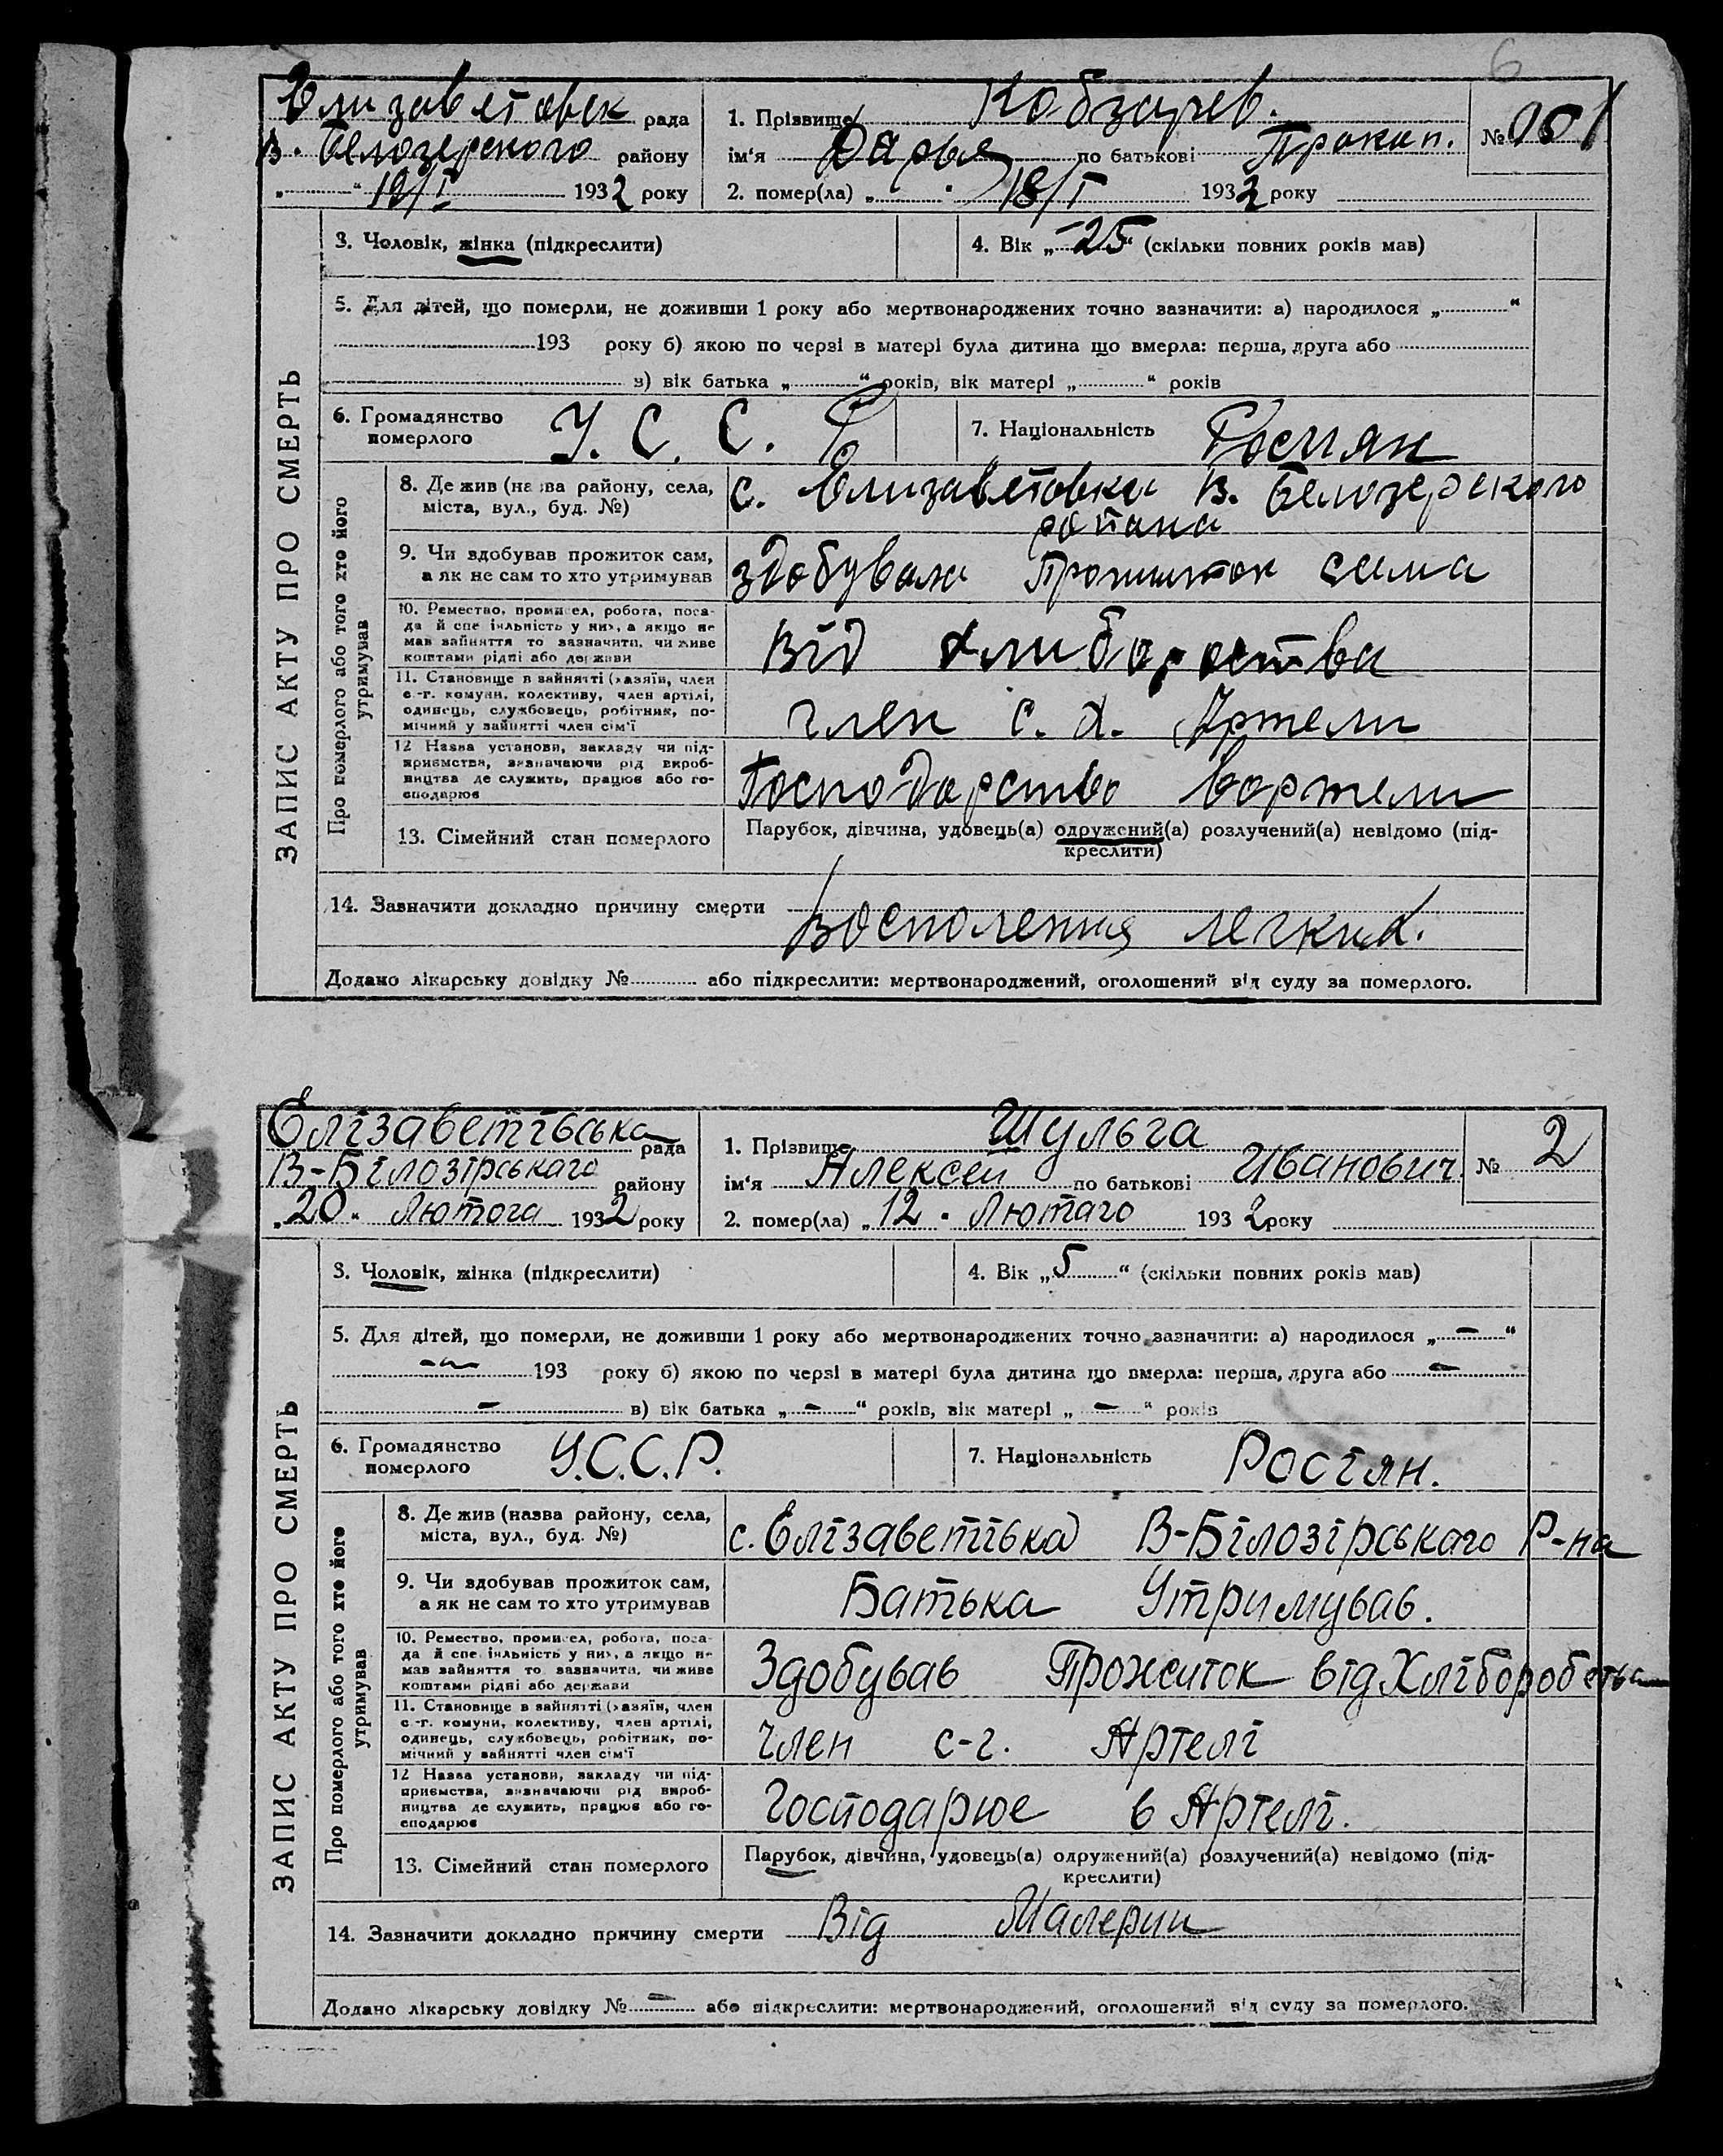 6
Єлизаветовск рада
В. Белозерского району
„ “ 19/I 1932 року
1. Прізвище Кобзарев.
ім'я Дарья по батькові Прокоп.
№ 1
2. помер(ла) „ “ 18/I 1932 року
ЗАПИС АКТУ ПРО СМЕРТЬ
3. Чоловік, жінка (підкреслити)
4. Вік „25“ (скільки повних років мав)
5. Для дітей, що померли, не доживши 1 року або мертвонароджених точно зазначити: а) народилося „ “
193 року б) якою по черзі в матері була дитина що вмерла: перша, друга або
в) вік батька „ “ років, вік матері „ “ років
6. Громадянство
померлого
У. С. С. Р
7. Національність
Росіян
Про померлого або того хто його
утримував
8. Де жив (назва району, села,
міста, вул., буд. №)
с. Елизаветовки В. Белозерского
района
9. Чи здобував прожиток сам,
а як не сам то хто утримував
здобувала прожиток сама
10. Ремество, промисел, робота, поса-
да й спеціяльність у них, а якщо не
мав зайняття то зазначити, чи живе
коштами рідні або держави
Від
11. Становище в зайнятті (хазяїн, член
с.-г. комуни, колективу, член артілі,
одинець, службовець, робітник, по-
мічний у зайнятті член сім'ї
член с. х. Артели
12 Назва установи, закладу чи під-
приємства, визначаючи рід вироб-
ництва де служить, працює або го-
сподарює
Господарство вартели
13. Сімейний стан померлого
Парубок, дівчина, удовець(а) одружений(а) розлучений(а) невідомо (під-
креслити)
14. Зазначити докладно причину смерти
Восполения легких.
Додано лікарську довідку № або підкреслити: мертвонароджений, оголошений від суду за померлого.
Єлізаветівська рада
В-Білозірськаго району
„20“ Лютога 1932 року
1. Прізвище Шульга
ім'я Алексей по батькові Иванович
№ 2
2. помер(ла) „12“ Лютаго 1932 року
ЗАПИС АКТУ ПРО СМЕРТЬ
3. Чоловік, жінка (підкреслити)
4. Вік „5“ (скільки повних років мав)
5. Для дітей, що померли, не доживши 1 року або мертвонароджених точно зазначити: а) народилося „-“
193 року б) якою по черзі в матері була дитина що вмерла: перша, друга або -
- в) вік батька „-“ років, вік матері „-“ років
6. Громадянство
померлого
У.С.С.Р.
7. Національність
Росіян.
Про померлого або того хто його
утримував
8. Де жив (назва району, села,
міста, вул., буд. №)
с. Єлізаветівка В-Білозірськаго Р-на
9. Чи здобував прожиток сам,
а як не сам то хто утримував
Батька Утримував.
10. Ремество, промисел, робота, поса-
да й спеціяльність у них, а якщо не
мав зайняття то зазначити, чи живе
коштами рідні або держави
Здобував Прожиток від Хліборобства
11. Становище в зайнятті (хазяїн, член
с.-г. комуни, колективу, член артілі,
одинець, службовець, робітник, по-
мічний у зайнятті член сім'ї
член с-г. Артелі
12 Назва установи, закладу чи під-
приємства, визначаючи рід вироб-
ництва де служить, працює або го-
сподарює
Господарює в Артелі.
13. Сімейний стан померлого
Парубок, дівчина, удовець(а) одружений(а) розлучений(а) невідомо (під-
креслити)
14. Зазначити докладно причину смерти
Від Малерии
Додано лікарську довідку № - або підкреслити: мертвонароджений, оголошений від суду за померлого.